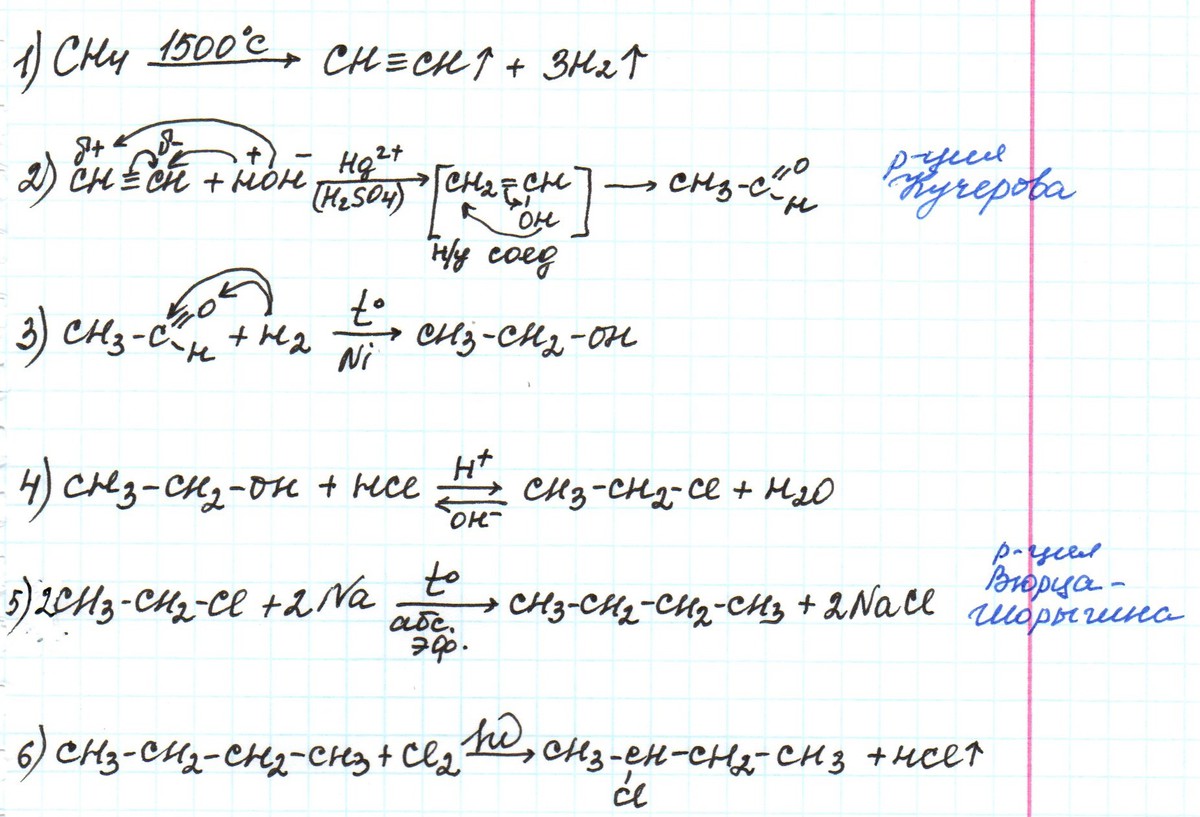 1) CH4 1500°C → CH≡CH↑ + 3H2↑
2) δ+ δ- + -
CH≡CH + HOH Hg²⁺ (H2SO4) → [CH2=CH OH] → CH3-C=O -H
н/у соед
р-ция
Кучерова
3) CH3-C=O -H + H2 t° Ni → CH3-CH2-OH
4) CH3-CH2-OH + HCl H⁺ ⇄ OH⁻ CH3-CH2-Cl + H2O
5) 2CH3-CH2-Cl + 2Na t° абс. эф. → CH3-CH2-CH2-CH3 + 2NaCl
р-ция
Вюрца-
Шорыгина
6) CH3-CH2-CH2-CH3 + Cl2 hν → CH3-CH-CH2-CH3 + HCl↑
Cl